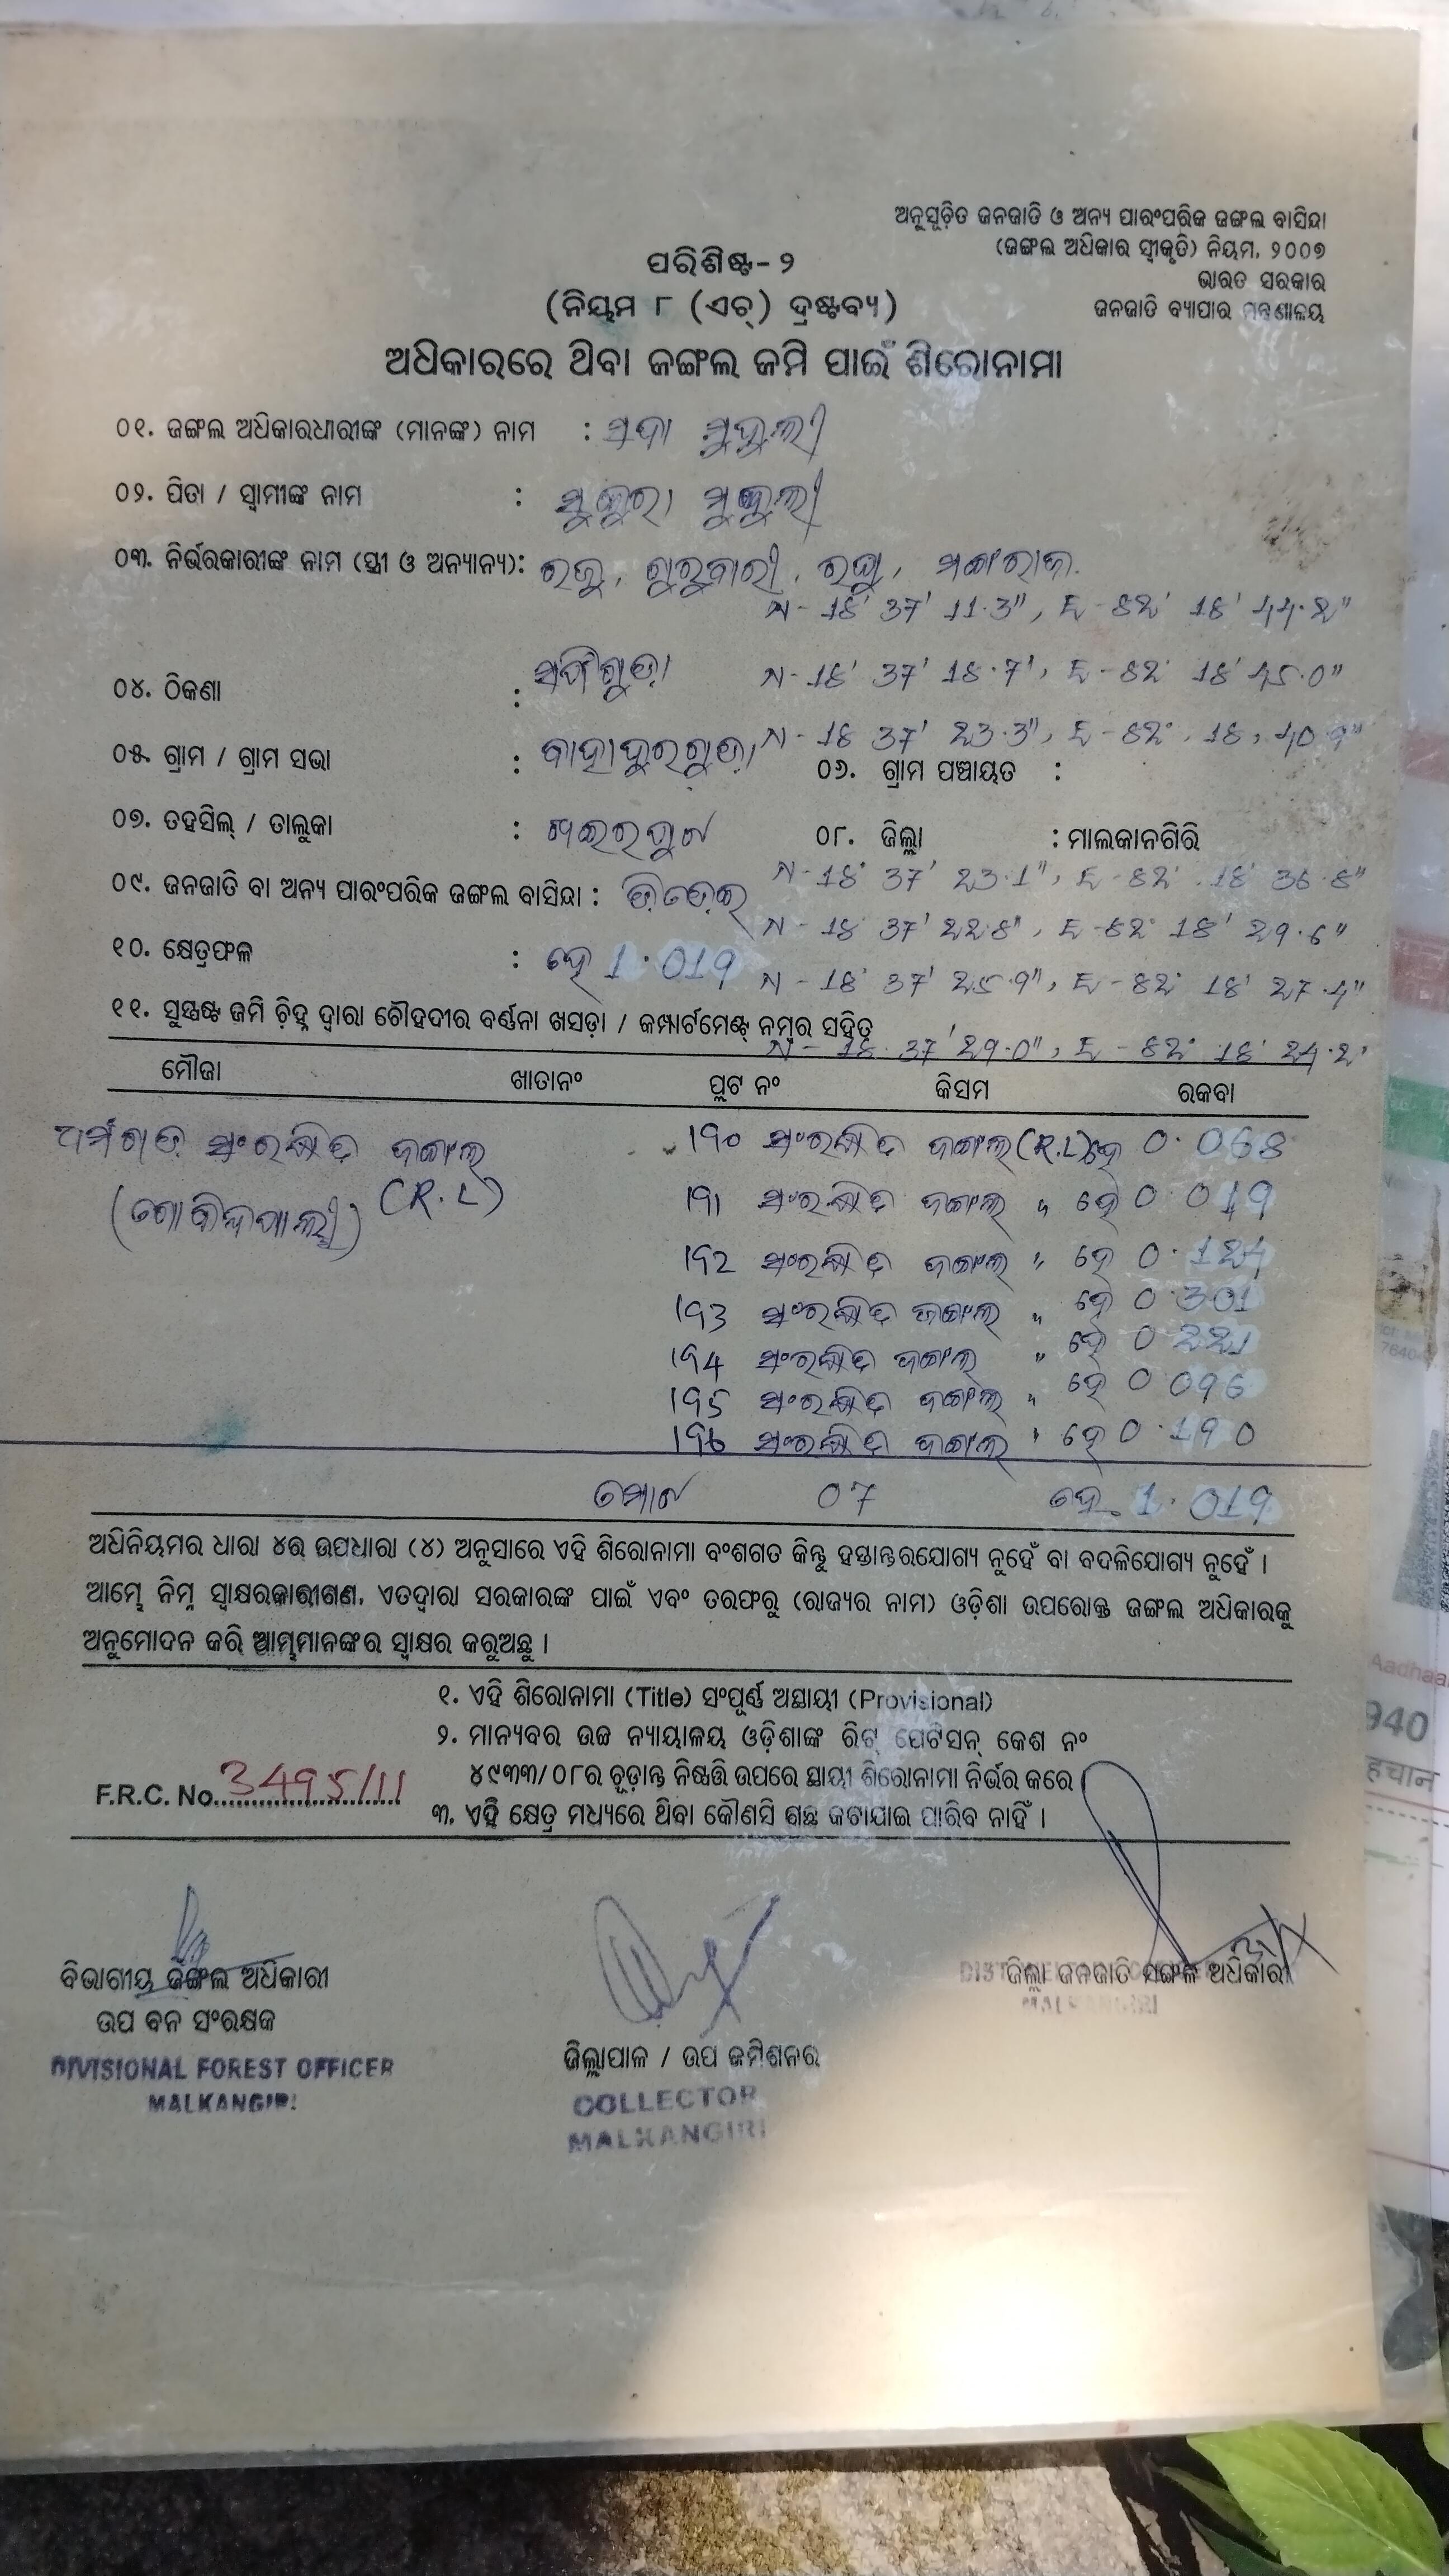 ଅନୁସୂଚିତ ଜନଜାତି ଓ ଅନ୍ୟ ପାରଂପରିକ ଜଙ୍ଗଲ ବାସିନ୍ଦା
(ଜଙ୍ଗଲ ଅଧିକାର ସ୍ୱୀକୃତି) ନିୟମ, ୨୦୦୭
ଭାରତ ସରକାର
ଜନଜାତି ବ୍ୟାପାର ମନ୍ତ୍ରଣାଳୟ
ପରିଶିଷ୍ଟ-୨
(ନିୟମ ୮ (ଏଚ୍) ଦ୍ରଷ୍ଟବ୍ୟ)
ଅଧିକାରରେ ଥିବା ଜଙ୍ଗଲ ଜମି ପାଇଁ ଶିରୋନାମା
୦୧. ଜଙ୍ଗଲ ଅଧିକାରଧାରୀଙ୍କ (ମାନଙ୍କ) ନାମ :
୦୨. ପିତା / ସ୍ୱାମୀଙ୍କ ନାମ :
୦୩. ନିର୍ଭରକାରୀଙ୍କ ନାମ (ସ୍ତ୍ରୀ ଓ ଅନ୍ୟାନ୍ୟ): ରଜୁ, ଗୁରୁବାରୀ, ରଘୁ, ମଙ୍ଗରାଜ.
N - 18' 37' 11.3", E - 82' 18' 44.2"
N - 18' 37' 18.7', E - 82' 18' 45.0"
୦୪. ଠିକଣା :
N - 18 37' 23.3", E - 82°, 18, 40.9"
୦୫. ଗ୍ରାମ / ଗ୍ରାମ ସଭା : ବାହାଦୁରଗୁଡ଼ା ୦୬. ଗ୍ରାମ ପଞ୍ଚାୟତ :
୦୭. ତହସିଲ୍ / ତାଲୁକା : ଖଇରପୁଟ ୦୮. ଜିଲ୍ଲା : ମାଲକାନଗିରି
N - 18° 37' 23.1", E - 82' 18' 36.8"
୦୯. ଜନଜାତି ବା ଅନ୍ୟ ପାରଂପରିକ ଜଙ୍ଗଲ ବାସିନ୍ଦା :
N - 18 37' 22.8", E - 82° 18' 29.6"
୧୦. କ୍ଷେତ୍ରଫଳ : ହେ 1.019
N - 18° 37' 25.9", E - 82° 18' 27.4"
୧୧. ସୁସ୍ପଷ୍ଟ ଜମି ଚିହ୍ନ ଦ୍ୱାରା ଚୌହଦୀର ବର୍ଣ୍ଣନା ଖସଡ଼ା / କମ୍ପାର୍ଟମେଣ୍ଟ୍ ନମ୍ବର ସହିତ
N - 18. 37 '29.0", E - 82° 18' 24.2'
ମୌଜା ଖାତାନଂ ପ୍ଲଟ ନଂ କିସମ ରକବା
ସଂରକ୍ଷିତ ଜଙ୍ଗଲ 190 ସଂରକ୍ଷିତ ଜଙ୍ଗଲ (R.L) ହେ 0.068
(ଗୋବିନ୍ଦପାଲ୍ଲୀ) (R.L) 191 ସଂରକ୍ଷିତ ଜଙ୍ଗଲ " ହେ 0.019
192 ସଂରକ୍ଷିତ ଜଙ୍ଗଲ " ହେ 0.124
193 ସଂରକ୍ଷିତ ଜଙ୍ଗଲ " ହେ 0.301
194 ସଂରକ୍ଷିତ ଜଙ୍ଗଲ " ହେ 0 221
195 ସଂରକ୍ଷିତ ଜଙ୍ଗଲ " ହେ 0 096
196 ସଂରକ୍ଷିତ ଜଙ୍ଗଲ " ହେ 0.190
ମୋଟ 07 ହେ 1.019
ଅଧିନିୟମର ଧାରା ୪ର ଉପଧାରା (୪) ଅନୁସାରେ ଏହି ଶିରୋନାମା ବଂଶଗତ କିନ୍ତୁ ହସ୍ତାନ୍ତରଯୋଗ୍ୟ ନୁହେଁ ବା ବଦଳିଯୋଗ୍ୟ ନୁହେଁ ।
ଆମ୍ଭେ ନିମ୍ନ ସ୍ୱାକ୍ଷରକାରୀଗଣ, ଏତଦ୍ୱାରା ସରକାରଙ୍କ ପାଇଁ ଏବଂ ତରଫରୁ (ରାଜ୍ୟର ନାମ) ଓଡ଼ିଶା ଉପରୋକ୍ତ ଜଙ୍ଗଲ ଅଧିକାରକୁ
ଅନୁମୋଦନ କରି ଆମ୍ଭମାନଙ୍କର ସ୍ୱାକ୍ଷର କରୁଅଛୁ ।
୧. ଏହି ଶିରୋନାମା (Title) ସଂପୂର୍ଣ୍ଣ ଅସ୍ଥାୟୀ (Provisional)
୨. ମାନ୍ୟବର ଉଚ୍ଚ ନ୍ୟାୟାଳୟ ଓଡ଼ିଶାଙ୍କ ରିଟ୍ ପେଟିସନ୍ କେଶ ନଂ
୪୯୩୩/୦୮ର ଚୂଡ଼ାନ୍ତ ନିଷ୍ପତ୍ତି ଉପରେ ସ୍ଥାୟୀ ଶିରୋନାମା ନିର୍ଭର କରେ
F.R.C. No. 3495/11
୩. ଏହି କ୍ଷେତ୍ର ମଧ୍ୟରେ ଥିବା କୌଣସି ଗଛ କଟାଯାଇ ପାରିବ ନାହିଁ ।
ବିଭାଗୀୟ ଜଙ୍ଗଲ ଅଧିକାରୀ
ଉପ ବନ ସଂରକ୍ଷକ
DIVISIONAL FOREST OFFICER
MALKANGIRI
ଜିଲ୍ଲାପାଳ / ଉପ କମିଶନର
COLLECTOR
MALKANGIRI
ଜିଲ୍ଲା ଜନଜାତି ମଙ୍ଗଳ ଅଧିକାରୀ
MALKANGIRI
Aadhaa
940
हचान